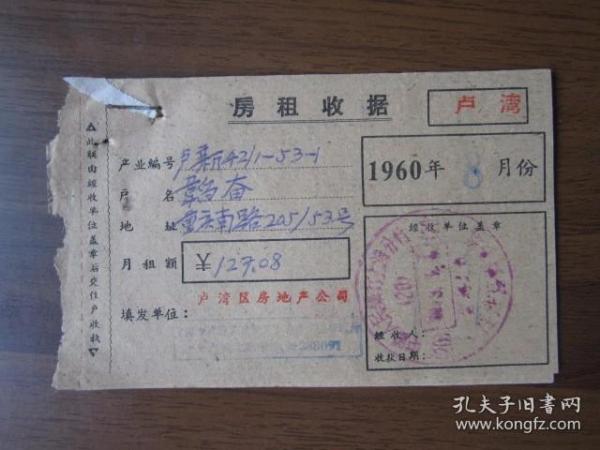 房租收据
卢湾
产业编号 卢新4211-53-1
1960年 8 月份
户名
地址 重庆南路205/53号
月租额 ¥ 127.08
填发单位: 卢湾区房地产公司
经收单位盖章
经收人:
收款日期:
此联由经收单位盖章后交住户收执
孔夫子旧书网
www.kongfz.com